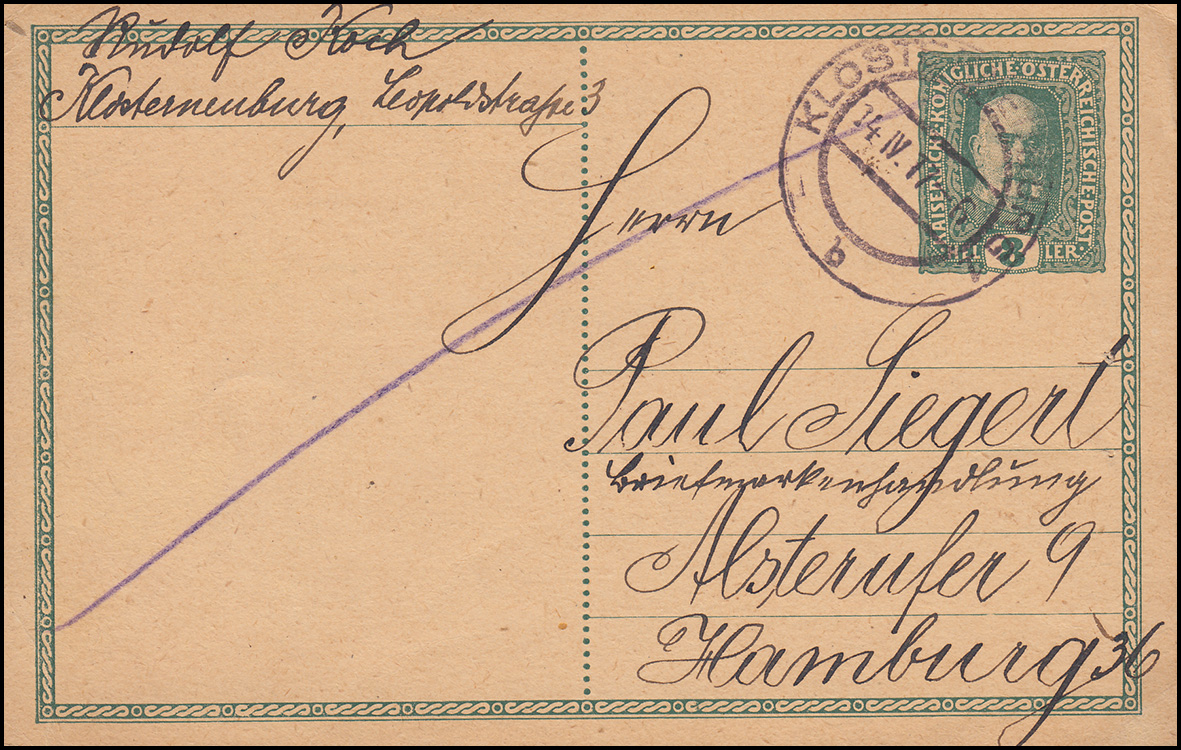 Rudolf Koch
Klosterneuburg, Leopoldstraße 3
KLOSTERNEUBURG
14 IV. 17
b
KAISERLICHE·KÖNIGLICHE·ÖSTERREICHISCHE·POST
8
HELLER
Herrn
Paul Siegert
Briefmarkenhandlung
Alsterufer 9
Hamburg 36